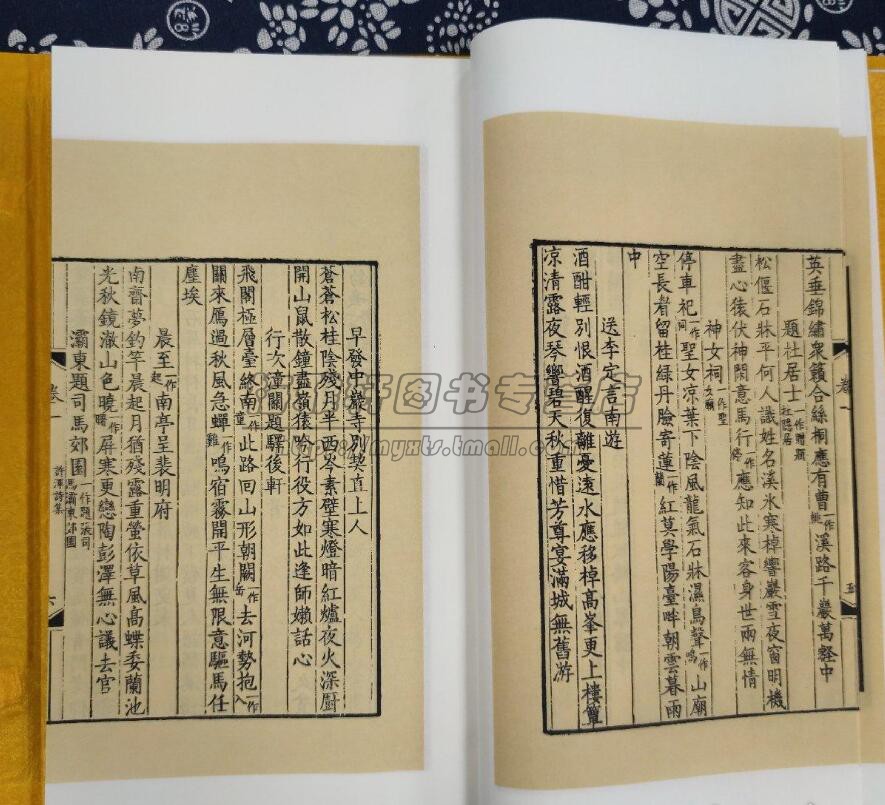 英垂錦繡衆籟合絲桐應有曹一作桃溪路千巖萬壑中
題杜居士一作贈題杜隱居
松偃石牀平何人識姓名溪氷寒棹響巖雪夜窗明機
盡心猿伏神閑意馬行一作停應知此來客身世兩無情
神女祠一作聖女廟
停車祀一作祠聖女凉葉下陰風龍氣石牀濕鳥聲一作鳴山廟
空長者留桂綠丹臉寄蓮一作蘭紅莫學陽臺畔朝雲暮雨
中
送李定言南遊
酒酣輕别恨酒醒復離憂遠水應移棹高峯更上樓簟
凉清露夜琴響碧天秋重惜芳尊宴滿城無舊游
卷一
五
早發中巖寺别契直上人
蒼蒼松桂陰殘月半西岑素壁寒燈暗紅爐夜火深厨
開山鼠散鐘盡嶺猿吟行役方如此逢師嬾話心
行次潼關題驛後軒
飛閣極層臺終南一作童此路回山形朝闕一作岳去河勢抱一作入
關來鴈過秋風急蟬一作雞鳴宿霧開平生無限意驅馬任
塵埃
晨至一作起南亭呈裴明府
南齋夢釣竿晨起月猶殘露重螢依草風高蝶委蘭池
光秋鏡澈山色曉一作曙屏寒更戀陶彭澤無心議去官
灞東題司馬郊園一作題張司馬灞東郊園
許渾詩集
卷一
六
http://www.myxts.com